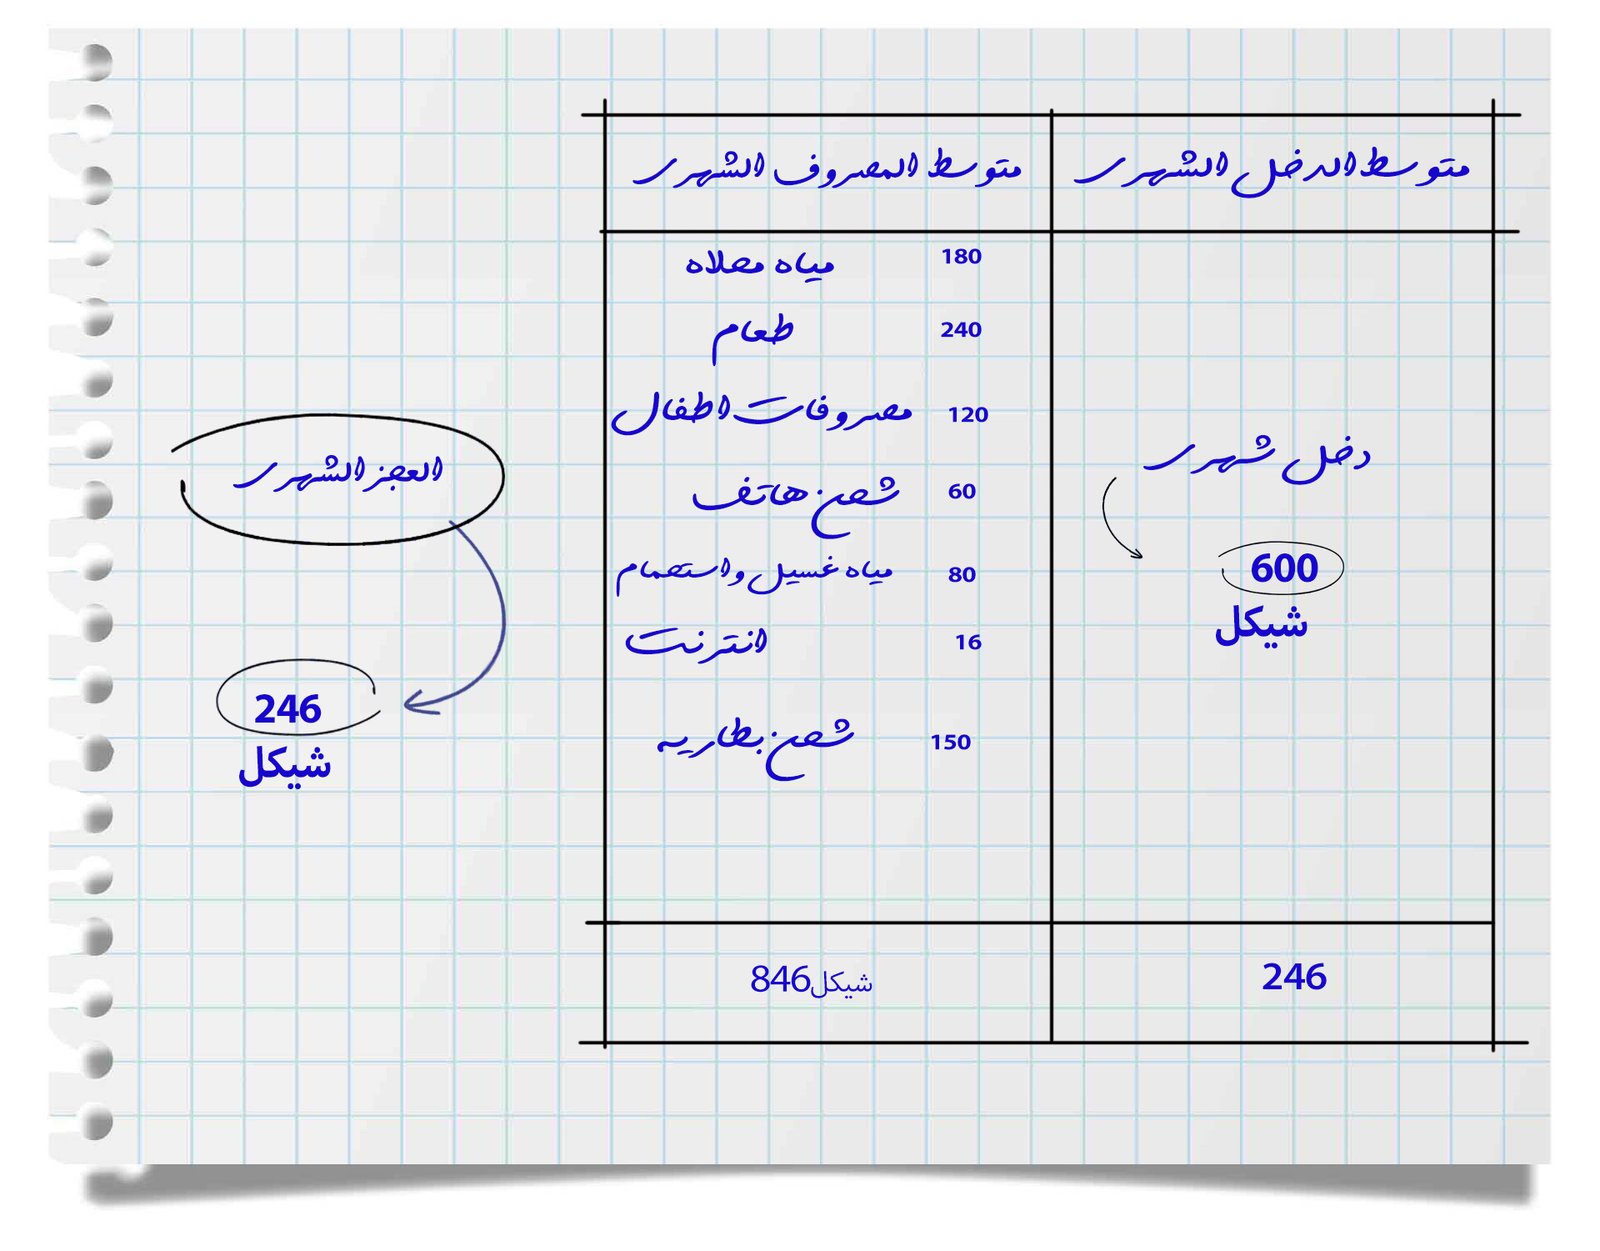 متوسط الدخل الشهرى
متوسط المصروف الشهرى
دخل شهرى
600
شيكل
180 مياه محلاه
240 طعام
120 مصروفات اطفال
60 شحن هاتف
80 مياه غسيل واستحمام
16 انترنت
150 شحن بطاريه
246
846شيكل
العجز الشهرى
246
شيكل